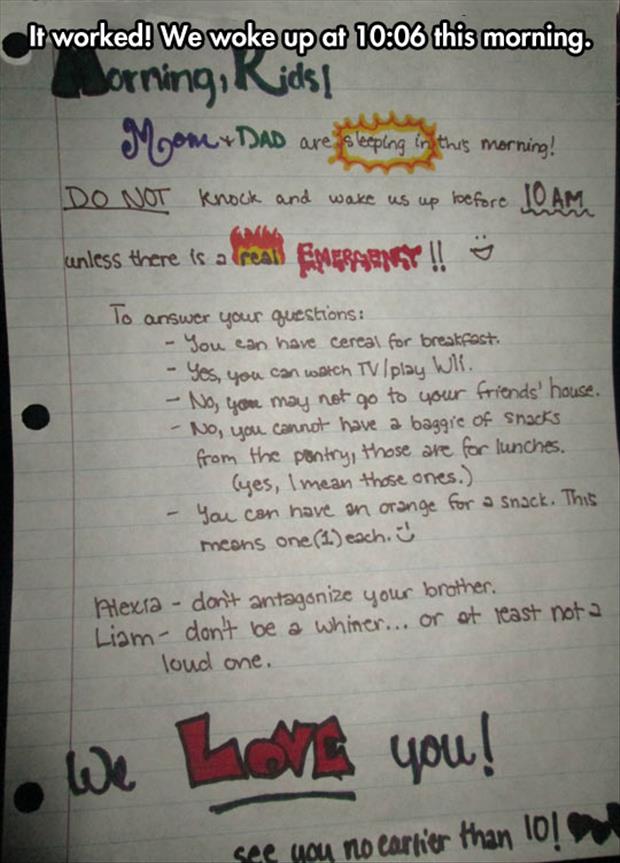 It worked! We woke up at 10:06 this morning.
Morning, Kids!
Mom + DAD are sleeping in this morning!
DO NOT knock and wake us up before 10 AM
unless there is a real EMERGENCY!!
To answer your questions:
- You can have cereal for breakfast.
- Yes, you can watch TV/play WII.
- No, you may not go to your friends' house.
- No, you cannot have a baggie of snacks
from the pantry, those are for lunches.
(yes, I mean those ones.)
- You can have an orange for a snack. This
means one(1) each.
Alexia - don't antagonize your brother.
Liam - don't be a whiner... or at least not a
loud one.
We LOVE you!
see you no earlier than 10!